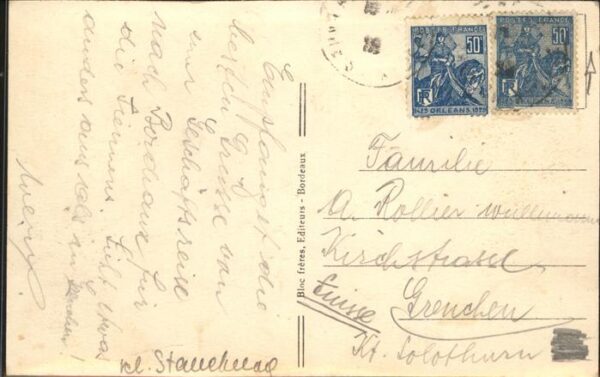 Empfanget die
besten Grüsse von
einer Geschäftsreise
nach Bordeaux für
die Firma. Sieht etwas
anders aus als in
kl. Stauchung
Bloc frères, Editeurs - Bordeaux
POSTES FRANCE
50c
RF
1429 ORLÉANS 1929
POSTES FRANCE
50c
RF
Familie
A. Rollier
Kirchstrasse
Grenchen
Suisse
Kt. Solothurn